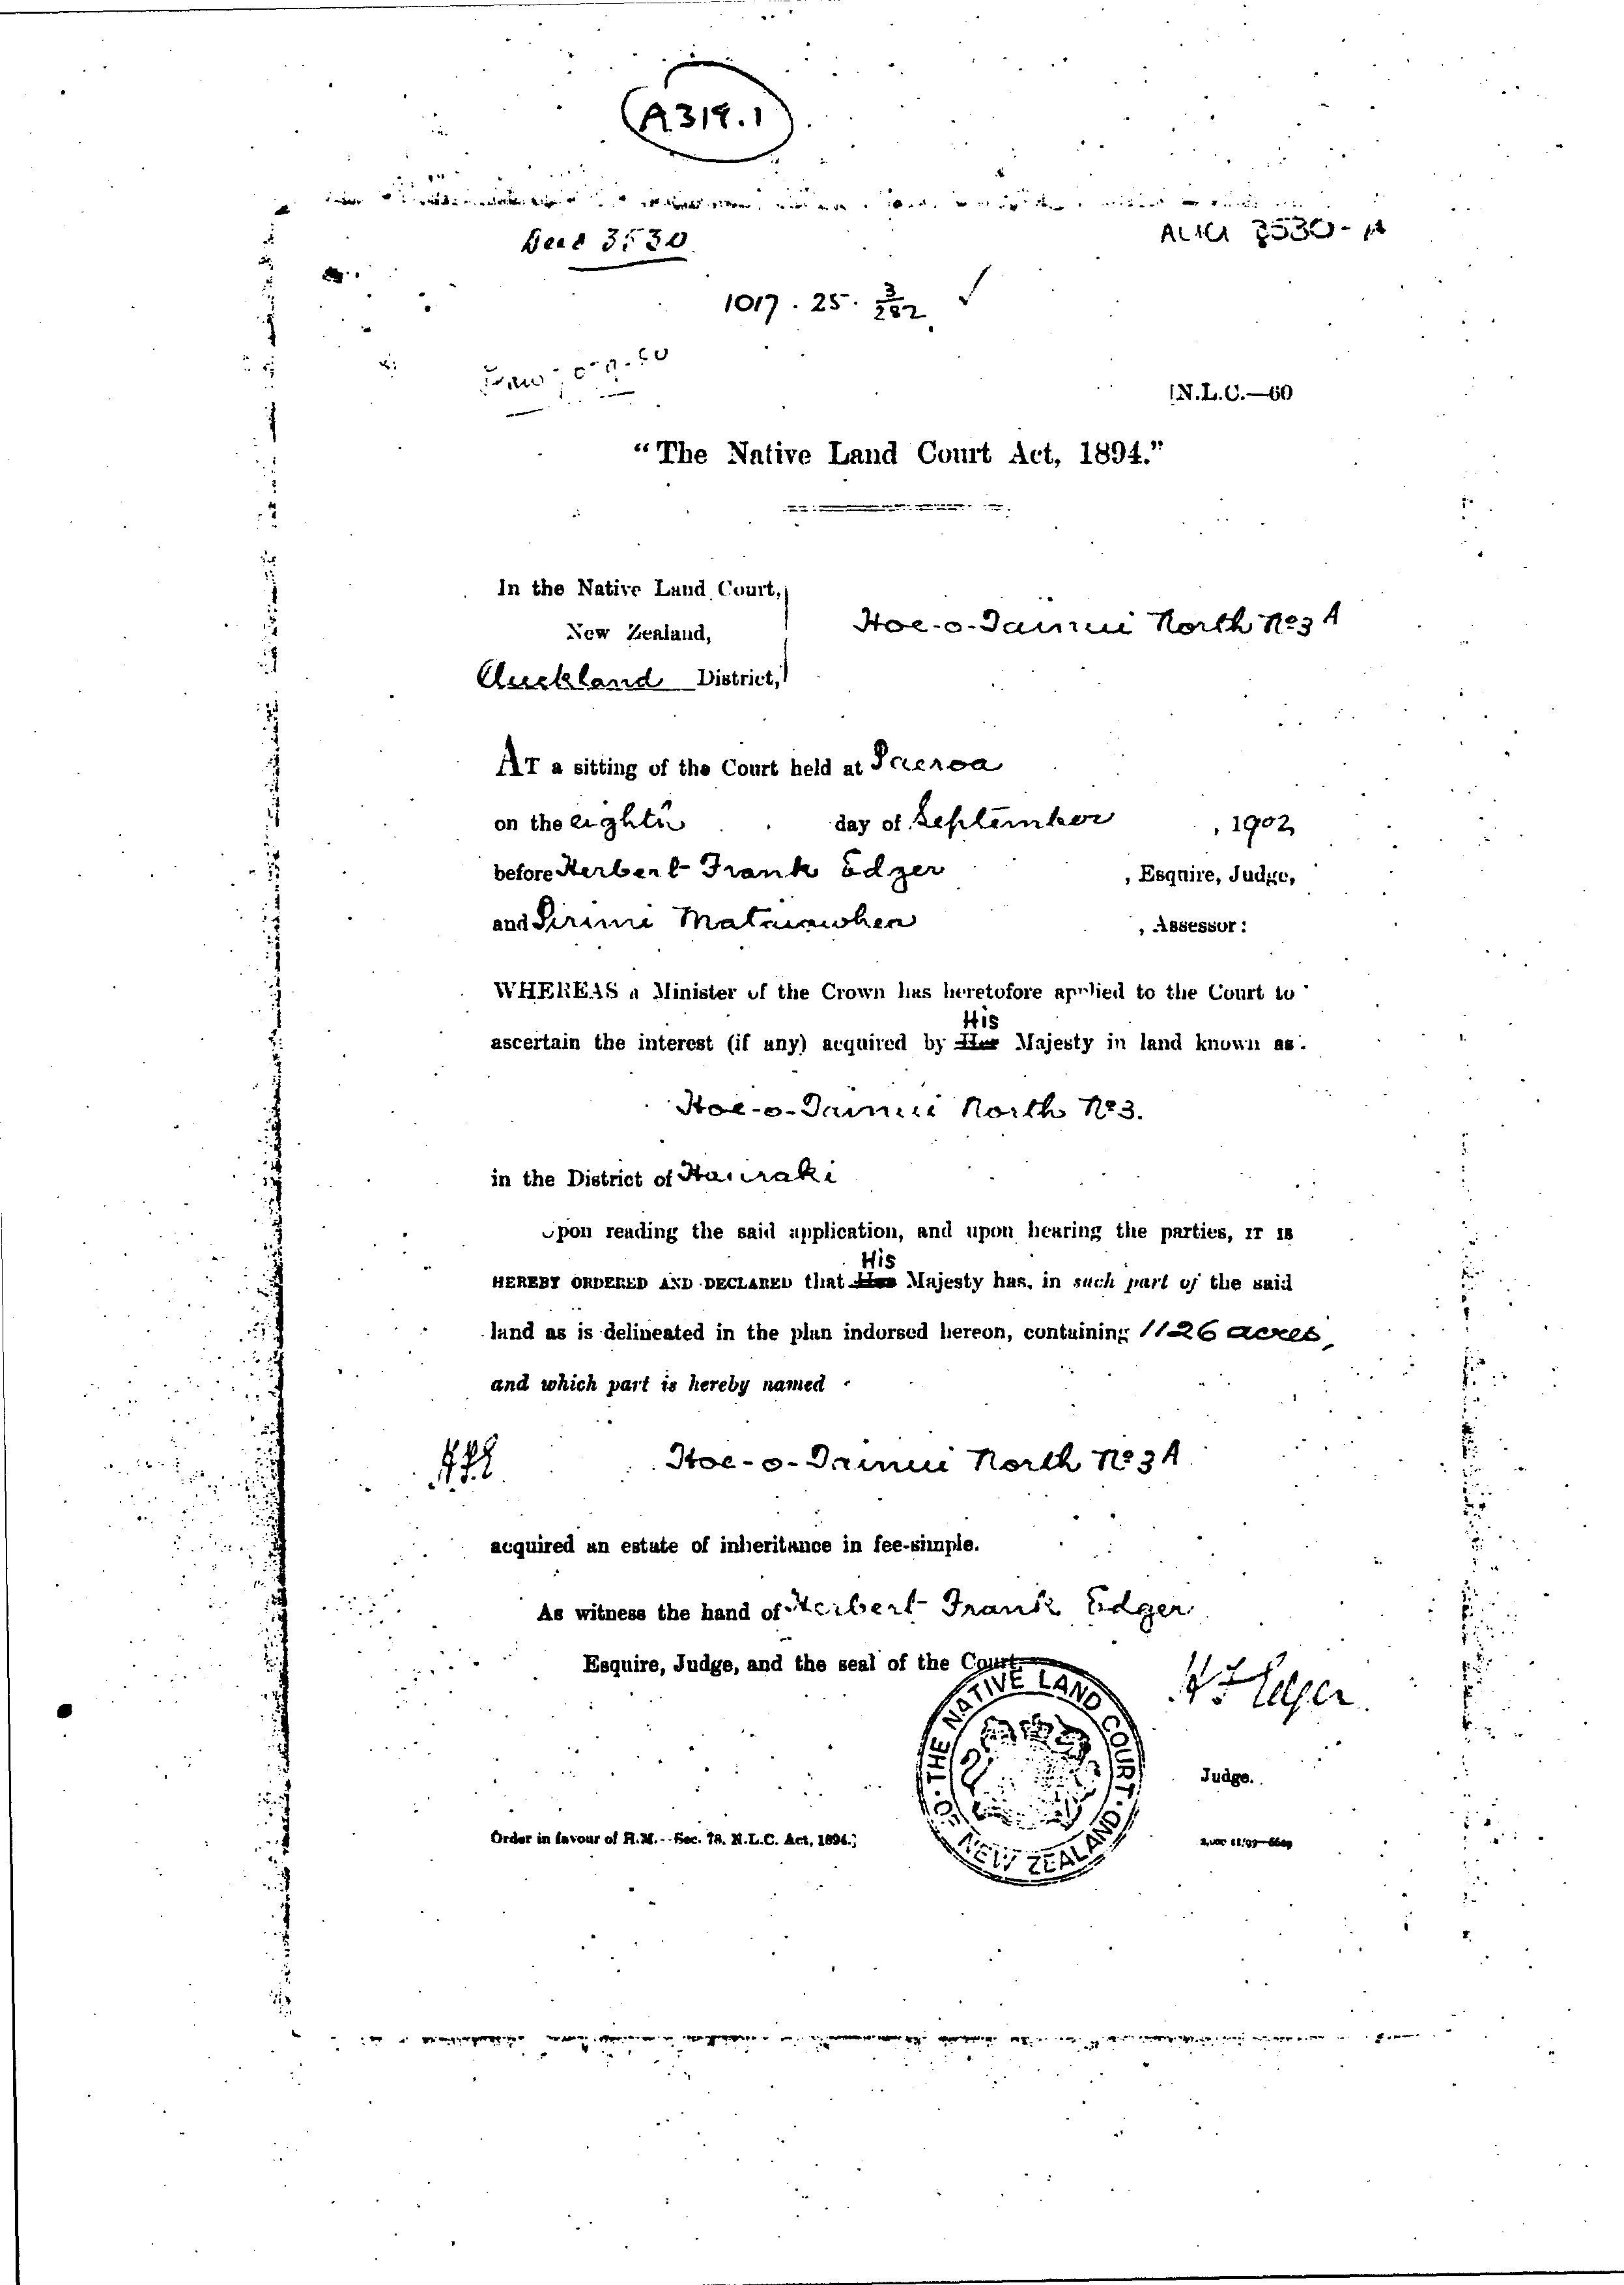 A319.1
Deed 3530
AUCK 3530-A
1017 . 25. 3/282 ✓
[N.L.C.—60
"The Native Land Court Act, 1894."
In the Native Land Court,
New Zealand,
Auckland District,
Hoe-o-Tainui North No 3 A
AT a sitting of the Court held at Paeroa
on the eighth day of September , 1902
before Herbert Frank Edger , Esquire, Judge,
and Pirimi Mataiawhea , Assessor:
WHEREAS a Minister of the Crown has heretofore applied to the Court to
His
ascertain the interest (if any) acquired by Her Majesty in land known as
Hoe-o-Tainui North No 3.
in the District of Hauraki
Upon reading the said application, and upon hearing the parties, IT IS
His
HEREBY ORDERED AND DECLARED that Her Majesty has, in such part of the said
land as is delineated in the plan indorsed hereon, containing 1126 acres,
and which part is hereby named
Hoe-o-Tainui North No 3A
acquired an estate of inheritance in fee-simple.
As witness the hand of Herbert Frank Edger
Esquire, Judge, and the seal of the Court.
H F Edger
THE NATIVE LAND COURT OF NEW ZEALAND
Judge.
Order in favour of H.M.--Sec. 78, N.L.C. Act, 1894.]